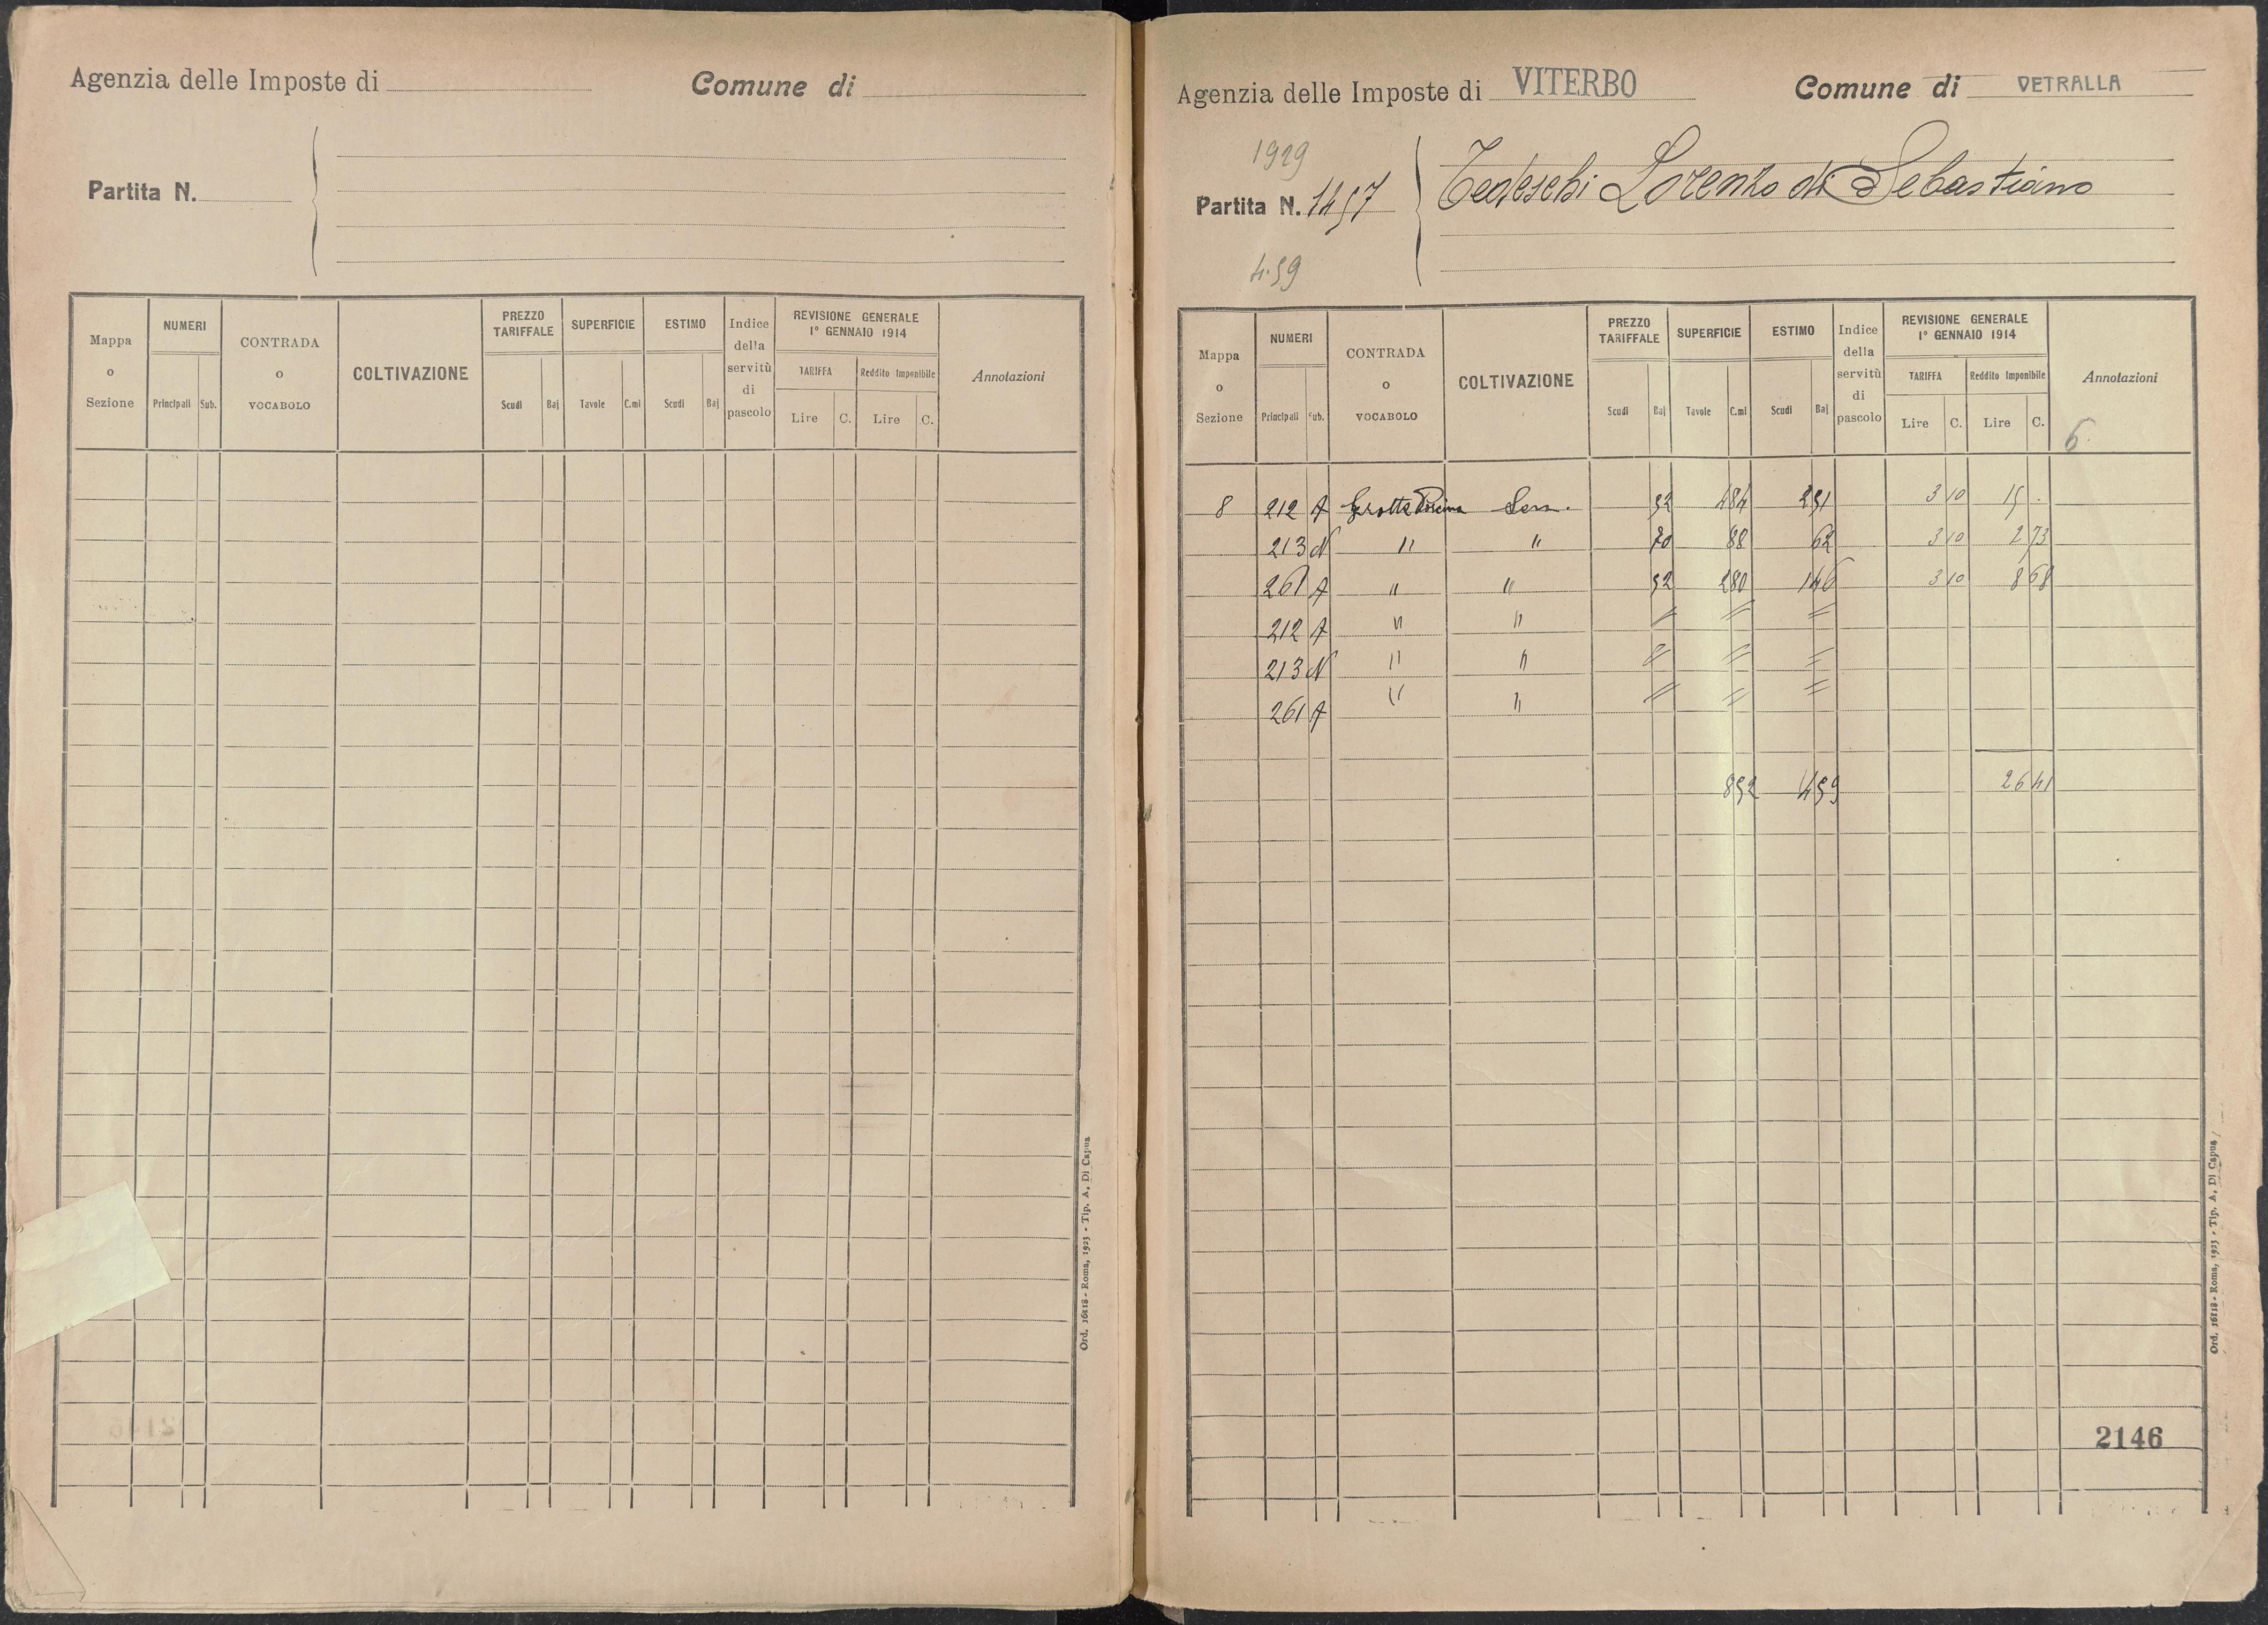 Agenzia delle Imposte di
Comune di
Partita N.
Mappa o Sezione
NUMERI
Principali Sub.
CONTRADA o VOCABOLO
COLTIVAZIONE
PREZZO TARIFFALE
Scudi Baj
SUPERFICIE
Tavole C.mi
ESTIMO
Scudi Baj
Indice della servitù di pascolo
REVISIONE GENERALE
1° GENNAIO 1914
TARIFFA Reddito Imponibile
Lire C. Lire C.
Annotazioni
Ord. 16118 - Roma, 1923 - Tip. A. Di Capua
Agenzia delle Imposte di VITERBO
Comune di VETRALLA
1929
Partita N. 1457
Tedeschi Lorenzo di Sebastiano
4.59
Mappa o Sezione
NUMERI
Principali Sub.
CONTRADA o VOCABOLO
COLTIVAZIONE
PREZZO TARIFFALE
Scudi Baj
SUPERFICIE
Tavole C.mi
ESTIMO
Scudi Baj
Indice della servitù di pascolo
REVISIONE GENERALE
1° GENNAIO 1914
TARIFFA Reddito Imponibile
Lire C. Lire C.
Annotazioni
6.
8 212 A Grotta Porcina Sem. 52 484 251 3 10 15 .
213 N " " 70 88 62 3 10 2 73
261 A " " 52 280 146 3 10 8 68
212 A " " = = =
213 N " " = = =
261 A " " = = =
852 459 26 41
2146
Ord. 16118 - Roma, 1923 - Tip. A. Di Capua